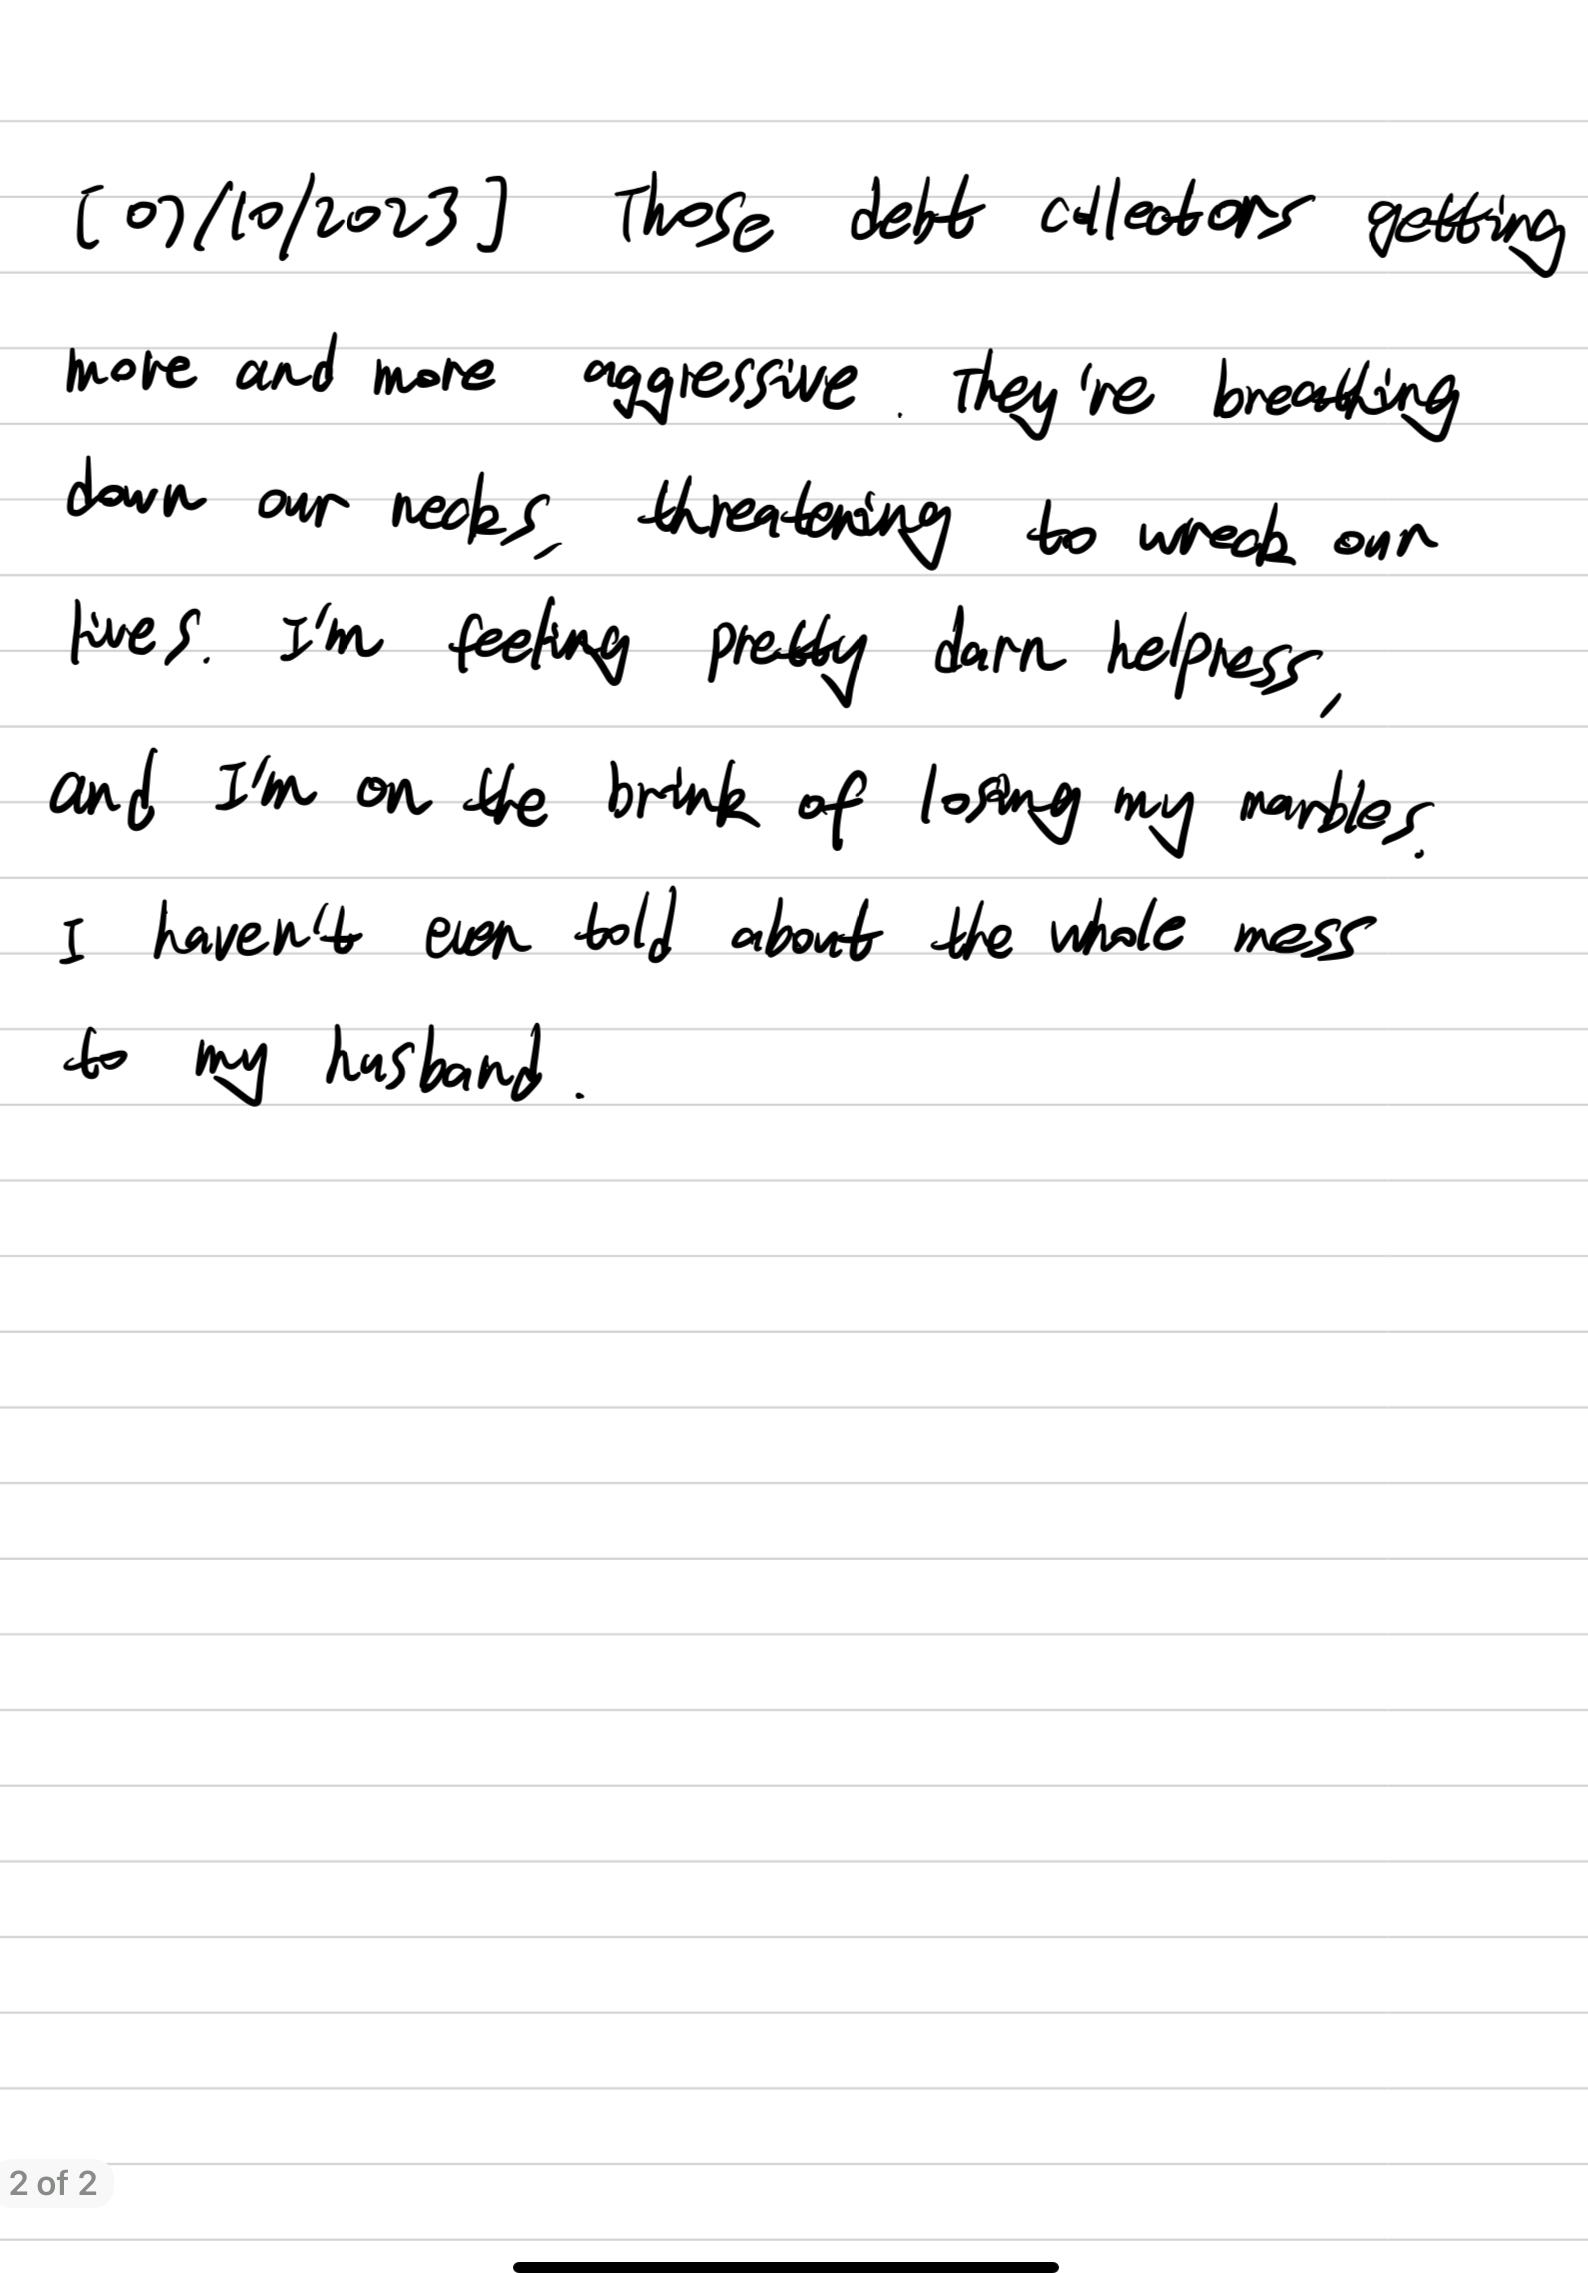 [07/10/2023] Those debt collectors getting
more and more aggressive. They're breathing
down our necks, threatening to wreck our
lives. I'm feeling pretty darn helpless,
and I'm on the brink of losing my marbles.
I haven't even told about the whole mess
to my husband.
2 of 2